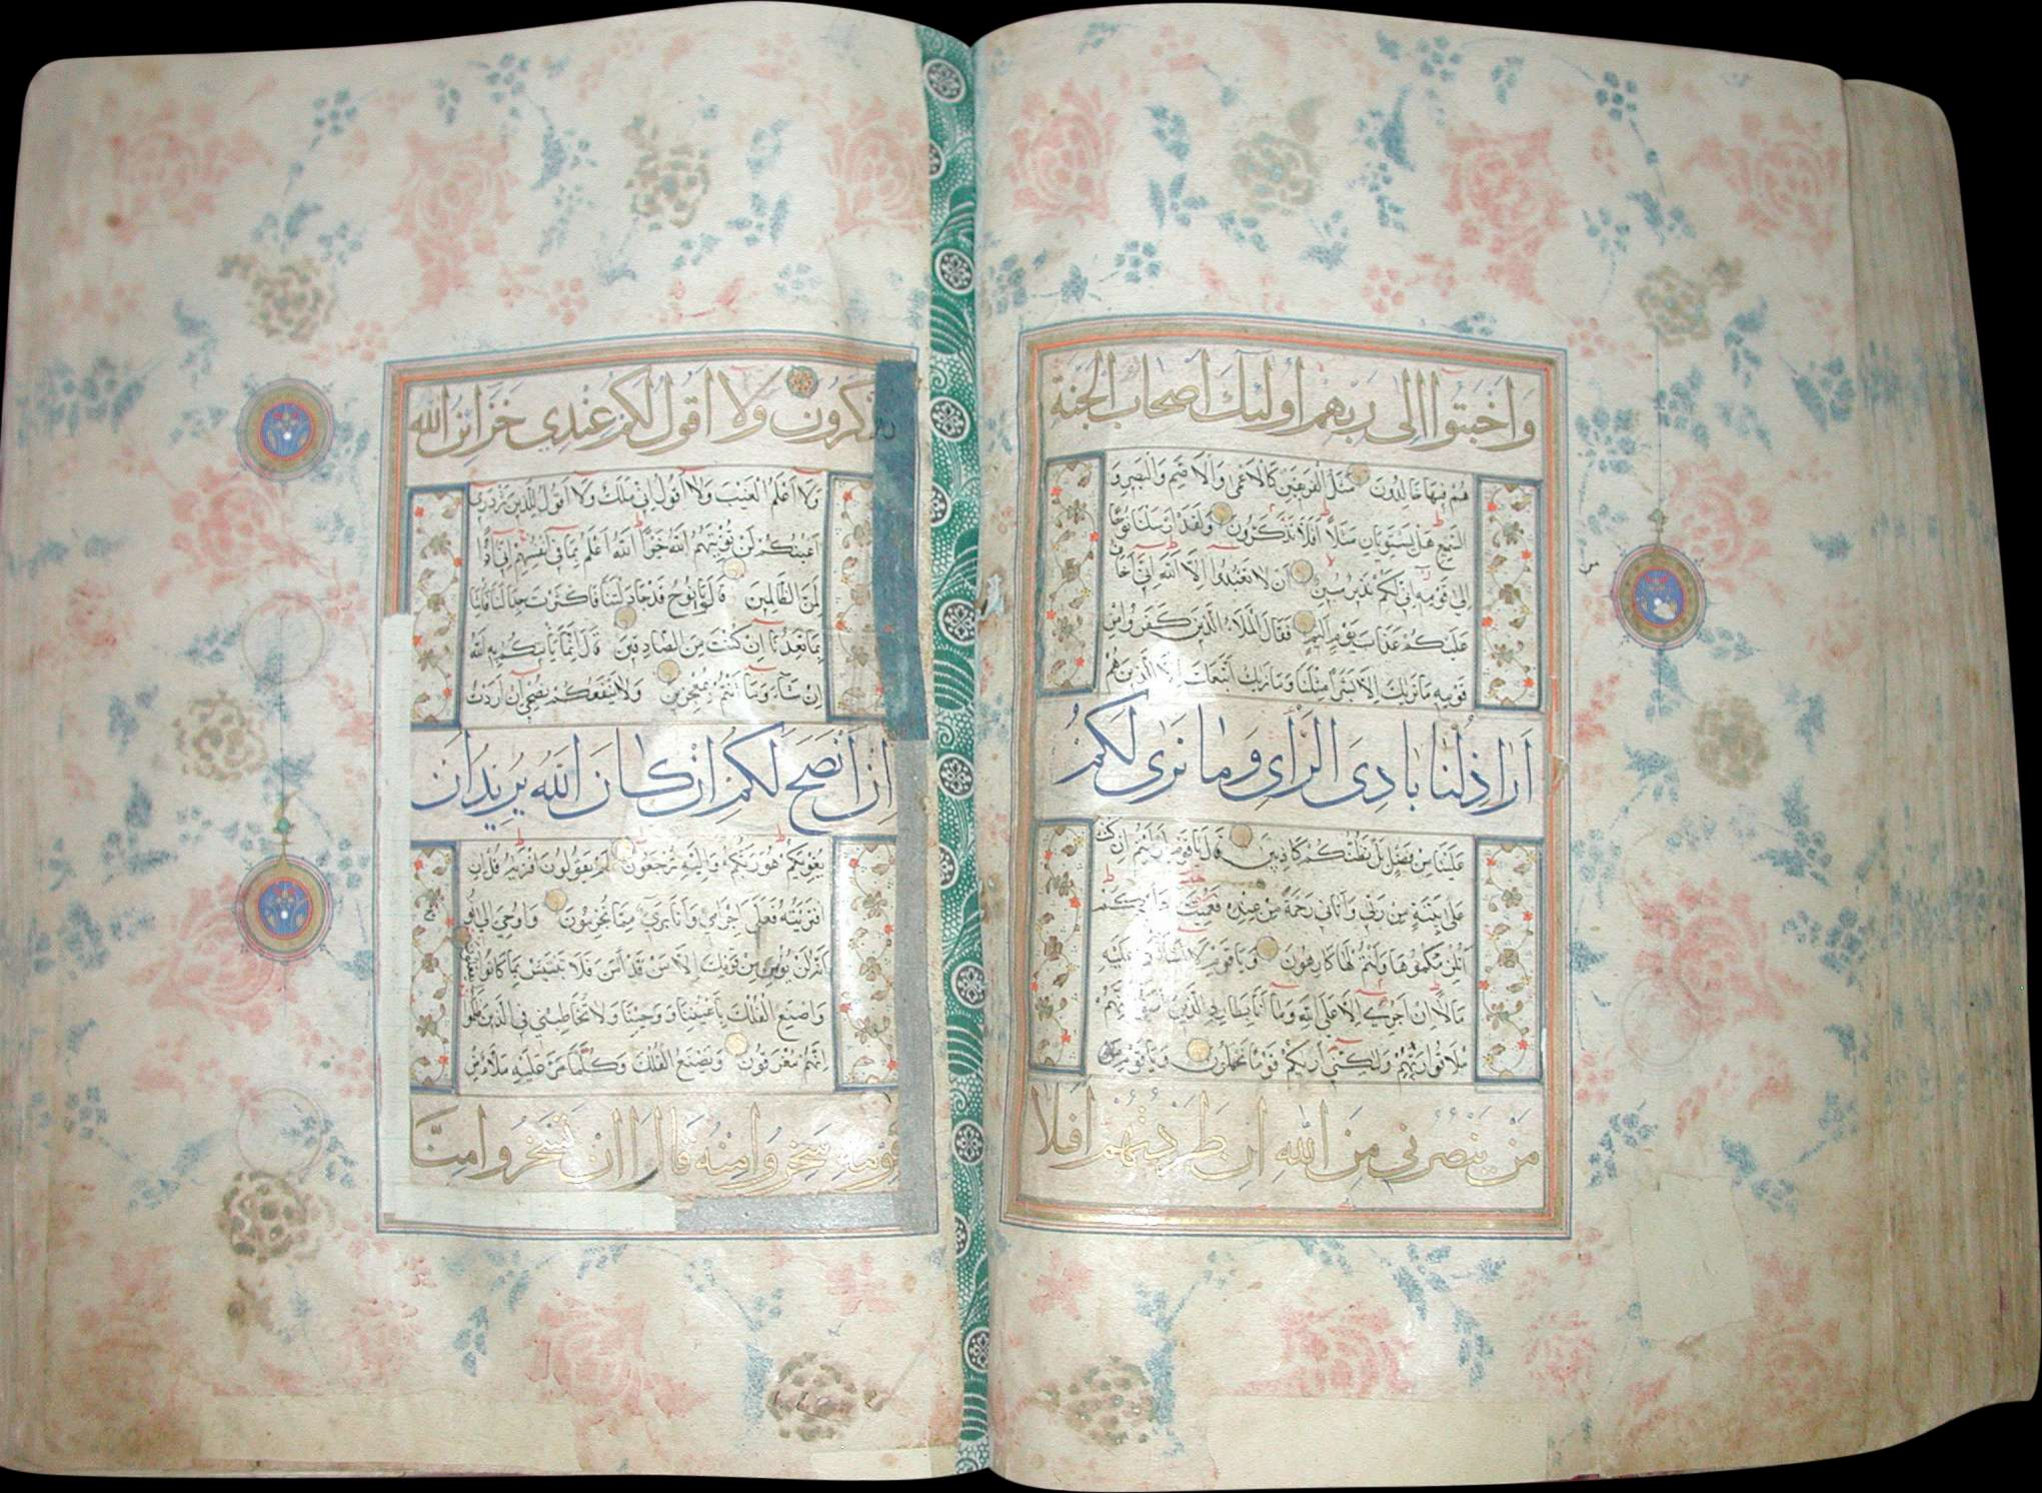 وَاَخْبَتُوا اِلى رَبِّهِمْ اُولئِكَ اَصْحَابُ الْجَنَّةِ
هُمْ فِيهَا خَالِدُونَ مَثَلُ الْفَرِيقَيْنِ كَالْاَعْمى وَالْاَصَمِّ وَالْبَصِيرِ وَ
السَّمِيعِ هَلْ يَسْتَوِيَانِ مَثَلًا اَفَلَا تَذَكَّرُونَ وَلَقَدْ اَرْسَلْنَا نُوحًا
اِلى قَوْمِهِ اِنِّي لَكُمْ نَذِيرٌ مُبِينٌ اَنْ لَا تَعْبُدُوا اِلَّا اللّهَ اِنِّي اَخَافُ
عَلَيْكُمْ عَذَابَ يَوْمٍ اَلِيمٍ فَقَالَ الْمَلَاُ الَّذِينَ كَفَرُوا مِنْ
قَوْمِهِ مَا نَرٰيكَ اِلَّا بَشَرًا مِثْلَنَا وَمَا نَرٰيكَ اتَّبَعَكَ اِلَّا الَّذِينَ هُمْ
اَرَاذِلُنَا بَادِيَ الرَّاْيِ وَمَا نَرٰى لَكُمْ
عَلَيْنَا مِنْ فَضْلٍ بَلْ نَظُنُّكُمْ كَاذِبِينَ قَالَ يَا قَوْمِ اَرَاَيْتُمْ اِنْ كُنْتُ
عَلى بَيِّنَةٍ مِنْ رَبِّي وَآتَانِي رَحْمَةً مِنْ عِنْدِهِ فَعُمِّيَتْ عَلَيْكُمْ
اَنُلْزِمُكُمُوهَا وَاَنْتُمْ لَهَا كَارِهُونَ وَيَا قَوْمِ لَا اَسْاَلُكُمْ عَلَيْهِ
مَالًا اِنْ اَجْرِيَ اِلَّا عَلَى اللّهِ وَمَا اَنَا بِطَارِدِ الَّذِينَ آمَنُوا اِنَّهُمْ
مُلَاقُوا رَبِّهِمْ وَلكِنِّي اَرٰيكُمْ قَوْمًا تَجْهَلُونَ وَيَا قَوْمِ
مَنْ يَنْصُرُنِي مِنَ اللّهِ اِنْ طَرَدْتُهُمْ اَفَلَا
تَذَكَّرُونَ وَلَا اَقُولُ لَكُمْ عِنْدِي خَزَائِنُ اللّهِ
وَلَا اَعْلَمُ الْغَيْبَ وَلَا اَقُولُ اِنِّي مَلَكٌ وَلَا اَقُولُ لِلَّذِينَ تَزْدَرِي
اَعْيُنُكُمْ لَنْ يُؤْتِيَهُمُ اللّهُ خَيْرًا اللّهُ اَعْلَمُ بِمَا فِي اَنْفُسِهِمْ اِنِّي اِذًا
لَمِنَ الظَّالِمِينَ قَالُوا يَا نُوحُ قَدْ جَادَلْتَنَا فَاَكْثَرْتَ جِدَالَنَا فَاْتِنَا
بِمَا تَعِدُنَا اِنْ كُنْتَ مِنَ الصَّادِقِينَ قَالَ اِنَّمَا يَاْتِيكُمْ بِهِ اللّهُ
اِنْ شَاءَ وَمَا اَنْتُمْ بِمُعْجِزِينَ وَلَا يَنْفَعُكُمْ نُصْحِي اِنْ اَرَدْتُ
اَنْ اَنْصَحَ لَكُمْ اِنْ كَانَ اللّهُ يُرِيدُ اَنْ
يُغْوِيَكُمْ هُوَ رَبُّكُمْ وَاِلَيْهِ تُرْجَعُونَ اَمْ يَقُولُونَ افْتَرٰيهُ قُلْ اِنِ
افْتَرَيْتُهُ فَعَلَيَّ اِجْرَامِي وَاَنَا بَرِيءٌ مِمَّا تُجْرِمُونَ وَاُوحِيَ اِلى نُوحٍ
اَنَّهُ لَنْ يُؤْمِنَ مِنْ قَوْمِكَ اِلَّا مَنْ قَدْ آمَنَ فَلَا تَبْتَئِسْ بِمَا كَانُوا يَفْعَلُونَ
وَاصْنَعِ الْفُلْكَ بِاَعْيُنِنَا وَوَحْيِنَا وَلَا تُخَاطِبْنِي فِي الَّذِينَ ظَلَمُوا
اِنَّهُمْ مُغْرَقُونَ وَيَصْنَعُ الْفُلْكَ وَكُلَّمَا مَرَّ عَلَيْهِ مَلَاٌ مِنْ
قَوْمِهِ سَخِرُوا مِنْهُ قَالَ اِنْ تَسْخَرُوا مِنَّا